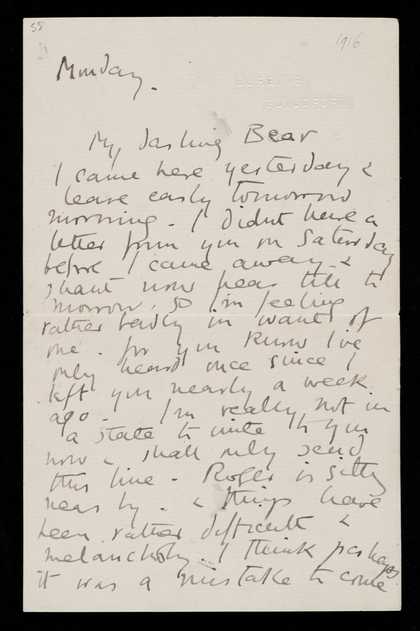 55
1916
DURBINS,
GUILDFORD.
Monday.
My darling Bear
I came here yesterday &
leave early tomorrow
morning - I didnt have a
letter from you on Saturday
before I came away &
shant now hear till to
morrow. So I'm feeling
rather badly in want of
one. for you know I've
only heard once since I
left you nearly a week
ago - I'm really not in
a state to write to you
now & shall only send
this line - Roger is sitting
near by - & things have
been rather difficult &
melancholy. I think perhaps
it was a mistake to come